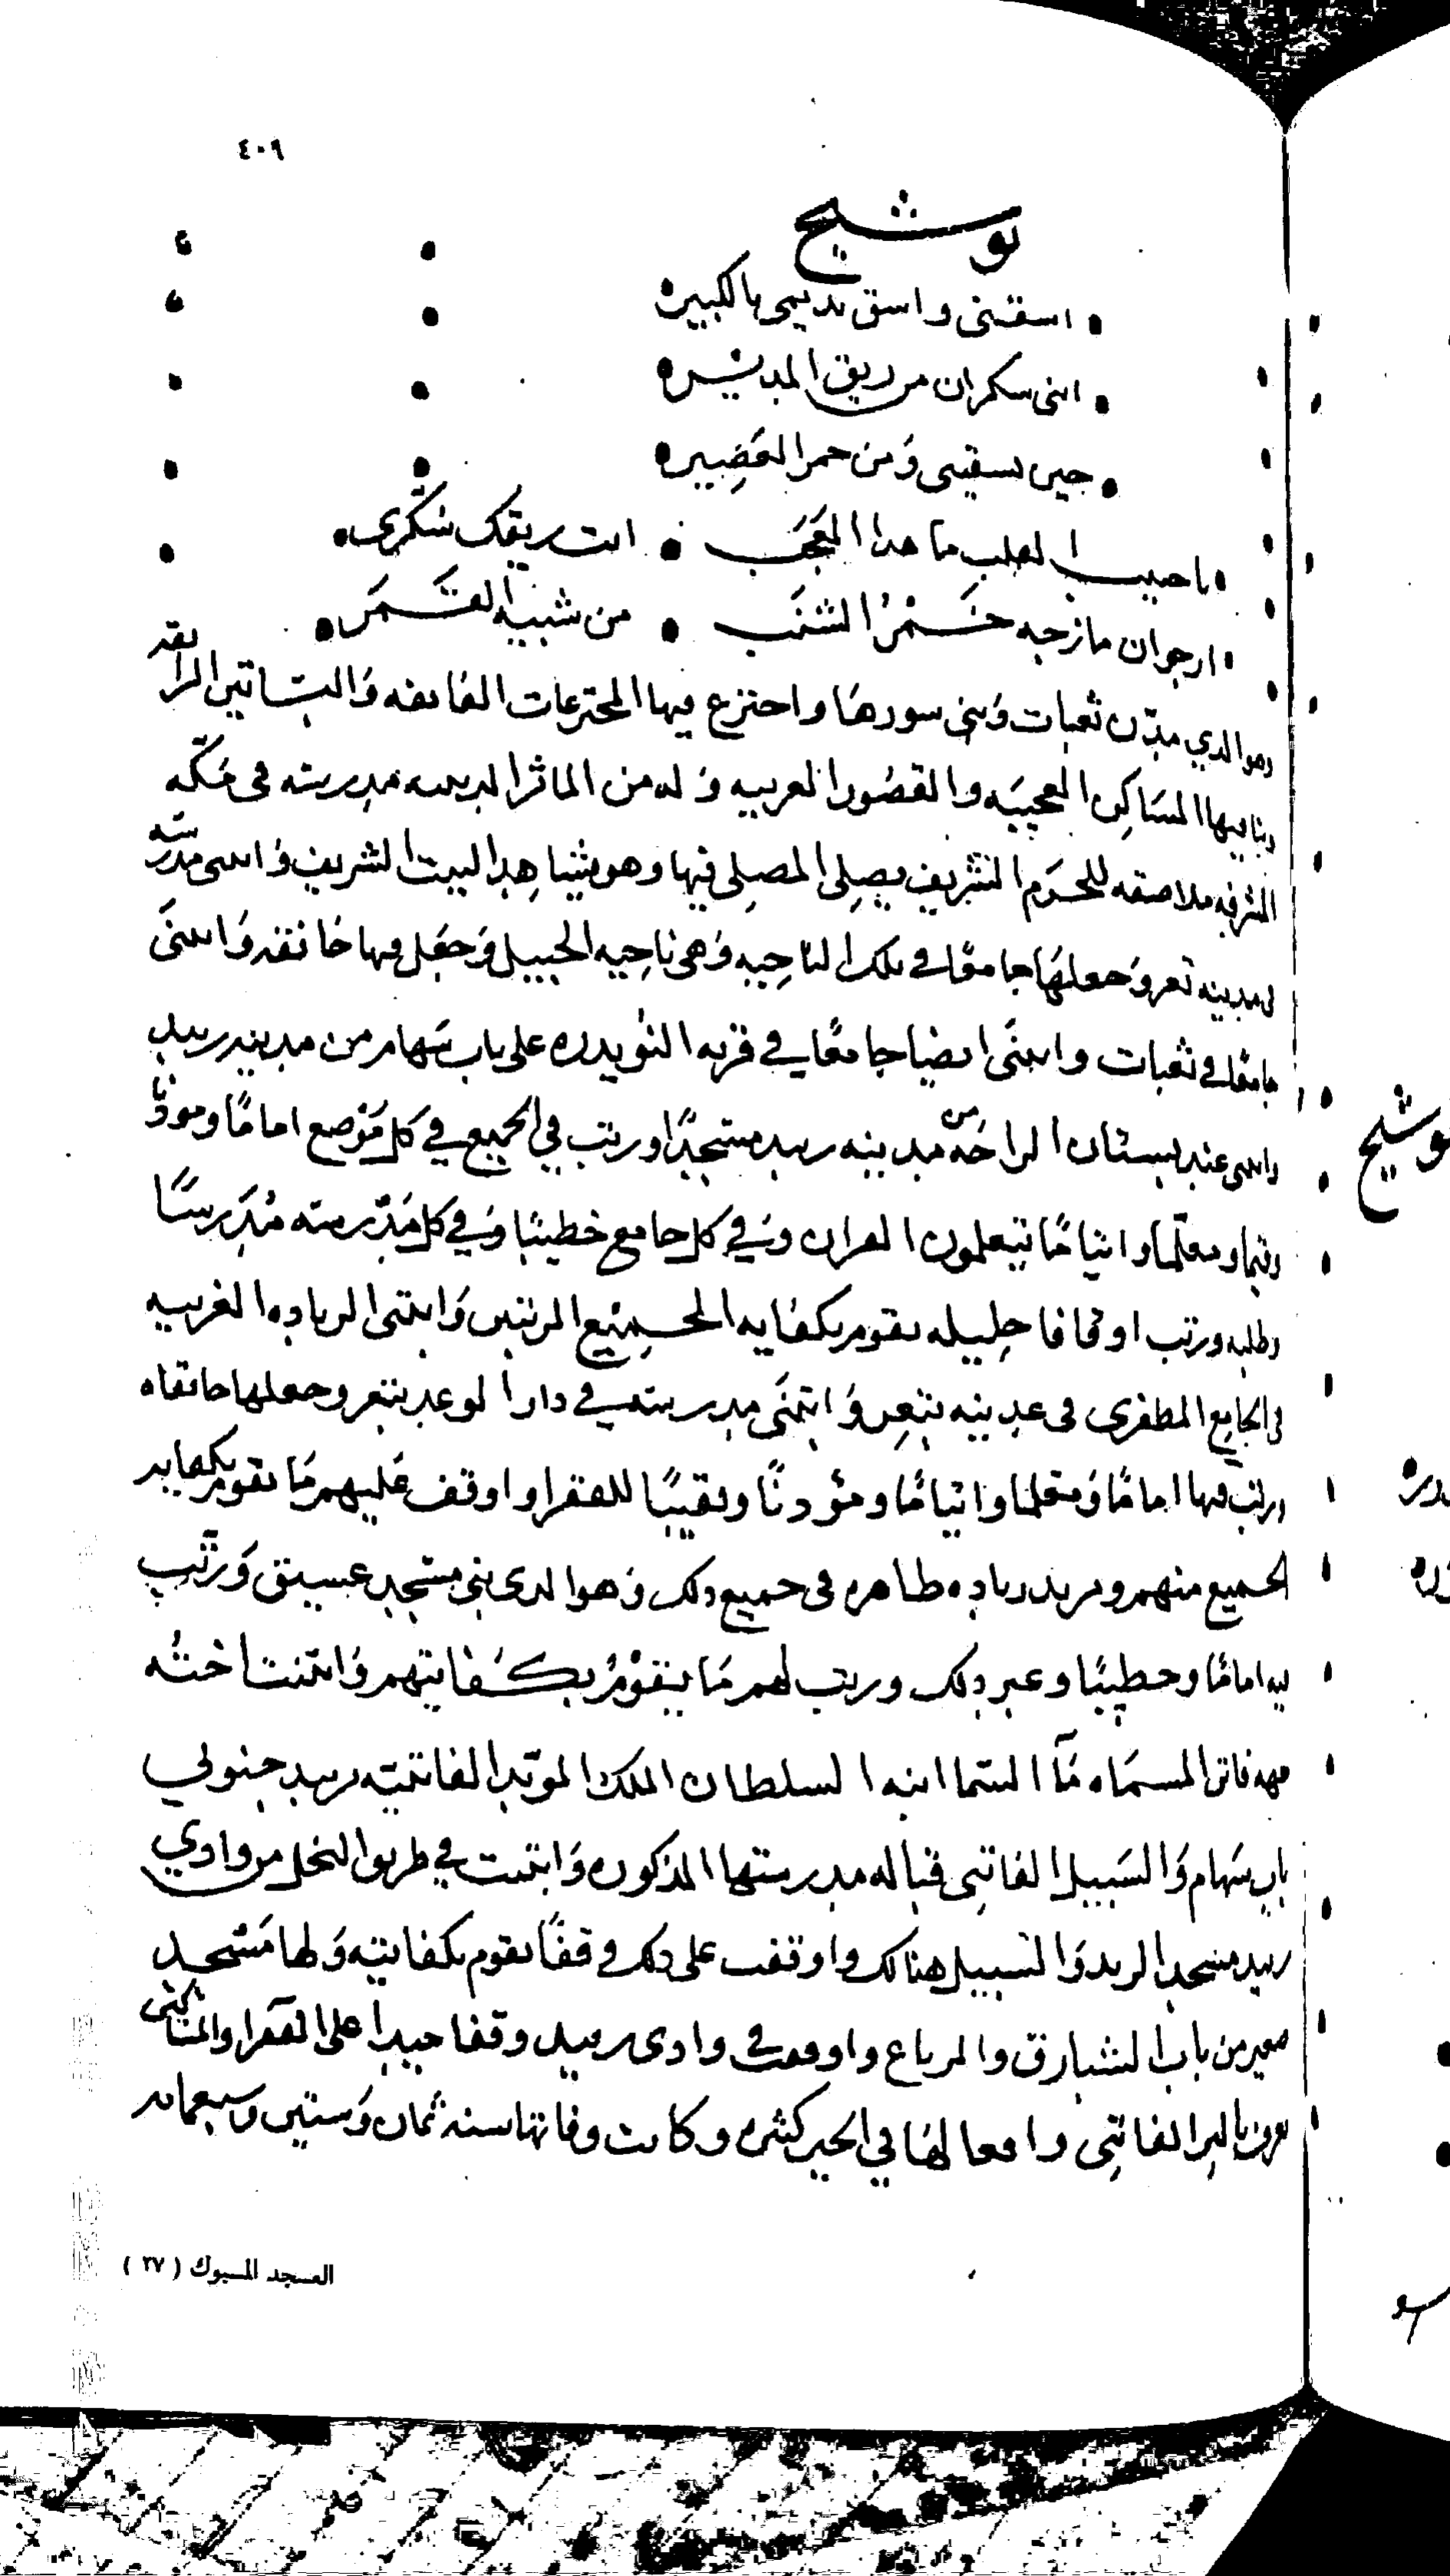 ٤٠٩
توشيح
اسقني واسق نديمي بالكبيره
انني سكران من ريق المديره
حين يسقيني ومن خمر العصيره
يا حبيب القلب ما هذا العجب انت ريقك سكري
ارجوان مازجه خمر الشنب من شبيه القمر
وهو الذي مدّن ثعبات وبنى سورها واخترع فيها المخترعات الفائقه والبساتين الرائقه
وبنا فيها المساكن العجيبه والقصور الغريبه وله من الماثر الدينيه مدرسته في مكّه
المشرفه ملاصقه للحرم الشريف يصلى المصلى فيها وهو يشاهد البيت الشريف وابتنى مدرسته
في مدينه تعز وجعلها جامعًا في تلك الناحيه وهي ناحيه الجبيل وجعل فيها خانقه وابتنى
جامعًا في ثعبات وابتنى ايضا جامعًا في قريه النويدره على باب سهام من مدينه زبيد
وابتنى عند بستان الراحه من مدينه زبيد مسجدًا ورتب في الجميع في كل موضع امامًا وموذنًا
وقيما ومعلّما وايتامًا يتعلمون القران وفي كل جامع خطيبًا وفي كل مدرسته مدرسًا
وطلبه ورتب اوقافا جليله تقوم بكفايه الجميع المرتبين وابتنى الزياده الغربيه
في الجامع المظفري في مدينه تعز وابتنى مدرسته في دار الوعد بتعز وجعلها خانقاه
ورتب فيها امامًا ومعلما وايتامًا ومؤذنًا ونقيبًا للفقرا واوقف عليهم ما يقوم بكفايه
الجميع منهم ومزيد زياده ظاهره في جميع ذلك وهو الذي بنى مسجد عسيق ورتّب
فيه امامًا وخطيبًا وغير ذلك ورتب لهم ما يقوم بكفايتهم وابتنت اخته
جهه فاتن المسماه مآ السما ابنه السلطان الملك المويّد الفاتنيّه بزبيد جنوبي
باب سهام والسبيل الفاتني قباله مدرستها المذكوره وابتنت في طريق النخل من وادي
زبيد مسجد الربد والسبيل هنالك واوقفت على ذلك وقفًا يقوم بكفايته ولها مسجد
صغير من باب الشبارق والمرباع واوقفت في وادي زبيد وقفا جيدا على الفقرا والمساكين
يعرف بالبر الفاتني وافعالها في الخير كثيره وكانت وفاتها سنه ثمان وستين وسبعمايه
العسجد المسبوك ( ٢٧ )
توشيح